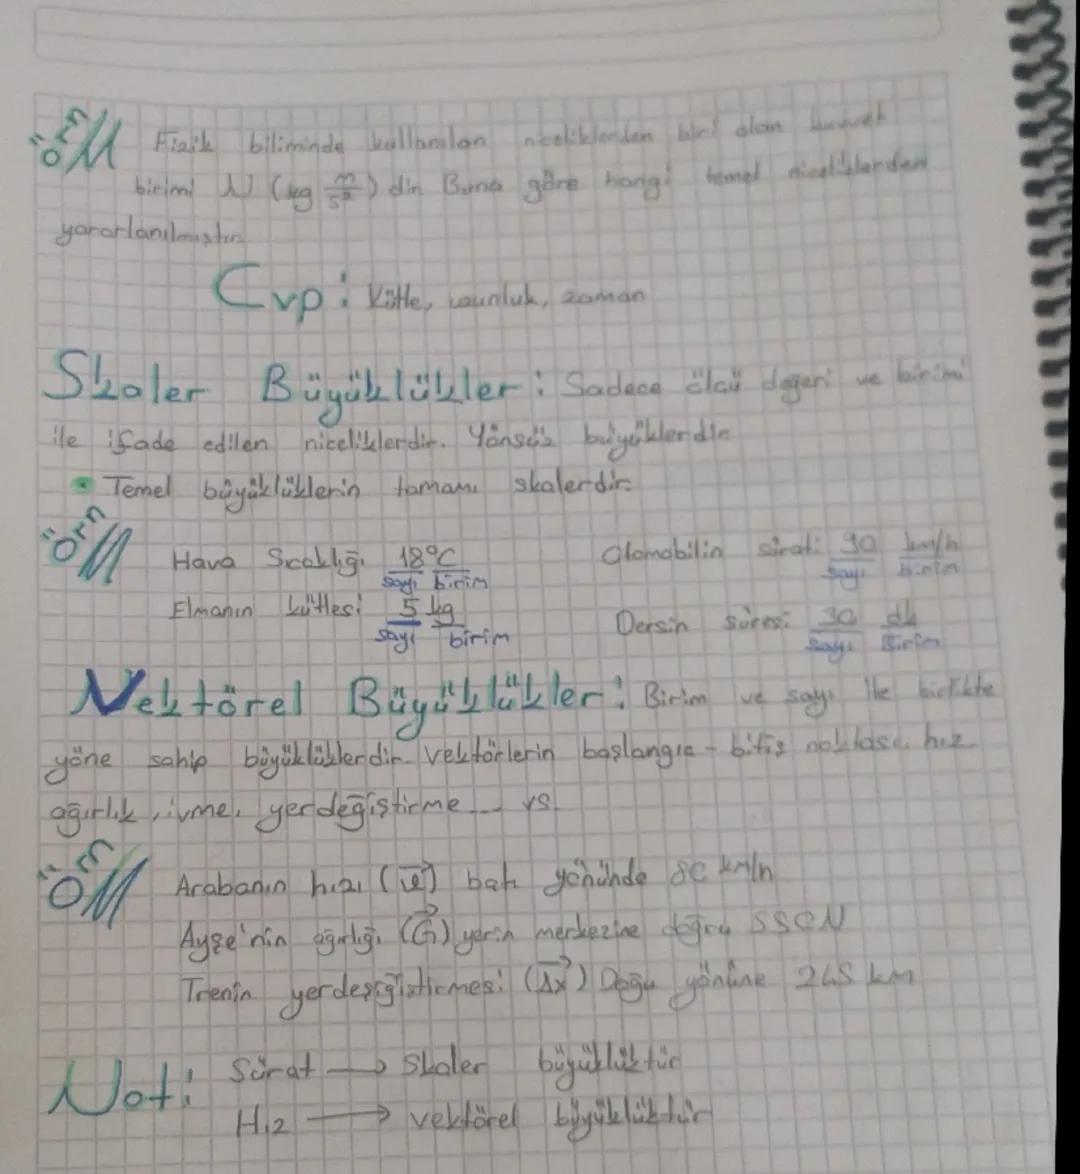 örn Fizik biliminde kullanılan niceliklerden biri olan kuvvet
birimi N (kg m/s²) dir. Buna göre hangi temel niceliklerden
yararlanılmıştır
Cvp: Kütle, uzunluk, zaman
Skaler Büyüklükler: Sadece ölçü değeri ve birimi
ile ifade edilen niceliklerdir. Yönsüz büyüklerdir
• Temel büyüklüklerin tamamı skalerdir.
örn Hava Sıcaklığı 18°C Otomobilin sürati: 90 km/h
sayı birim sayı birim
Elmanın kütlesi 5 kg Dersin süresi: 30 dk
sayı birim sayı Birim
Vektörel Büyüklükler: Birim ve sayı ile birlikte
yöne sahip büyüklüklerdir. vektörlerin başlangıç - bitiş noktası. hız
ağırlık, ivme, yerdeğiştirme ... vs.
örn Arabanın hızı (v⃗) batı yönünde 80 km/h
Ayşe'nin ağırlığı (G⃗) yerin merkezine doğru 550N
Trenin yerdeğiştirmesi (Δx⃗) Doğu yönüne 245 km
Not: Sürat → Skaler büyüklüktür
Hız → vektörel büyüklüktür